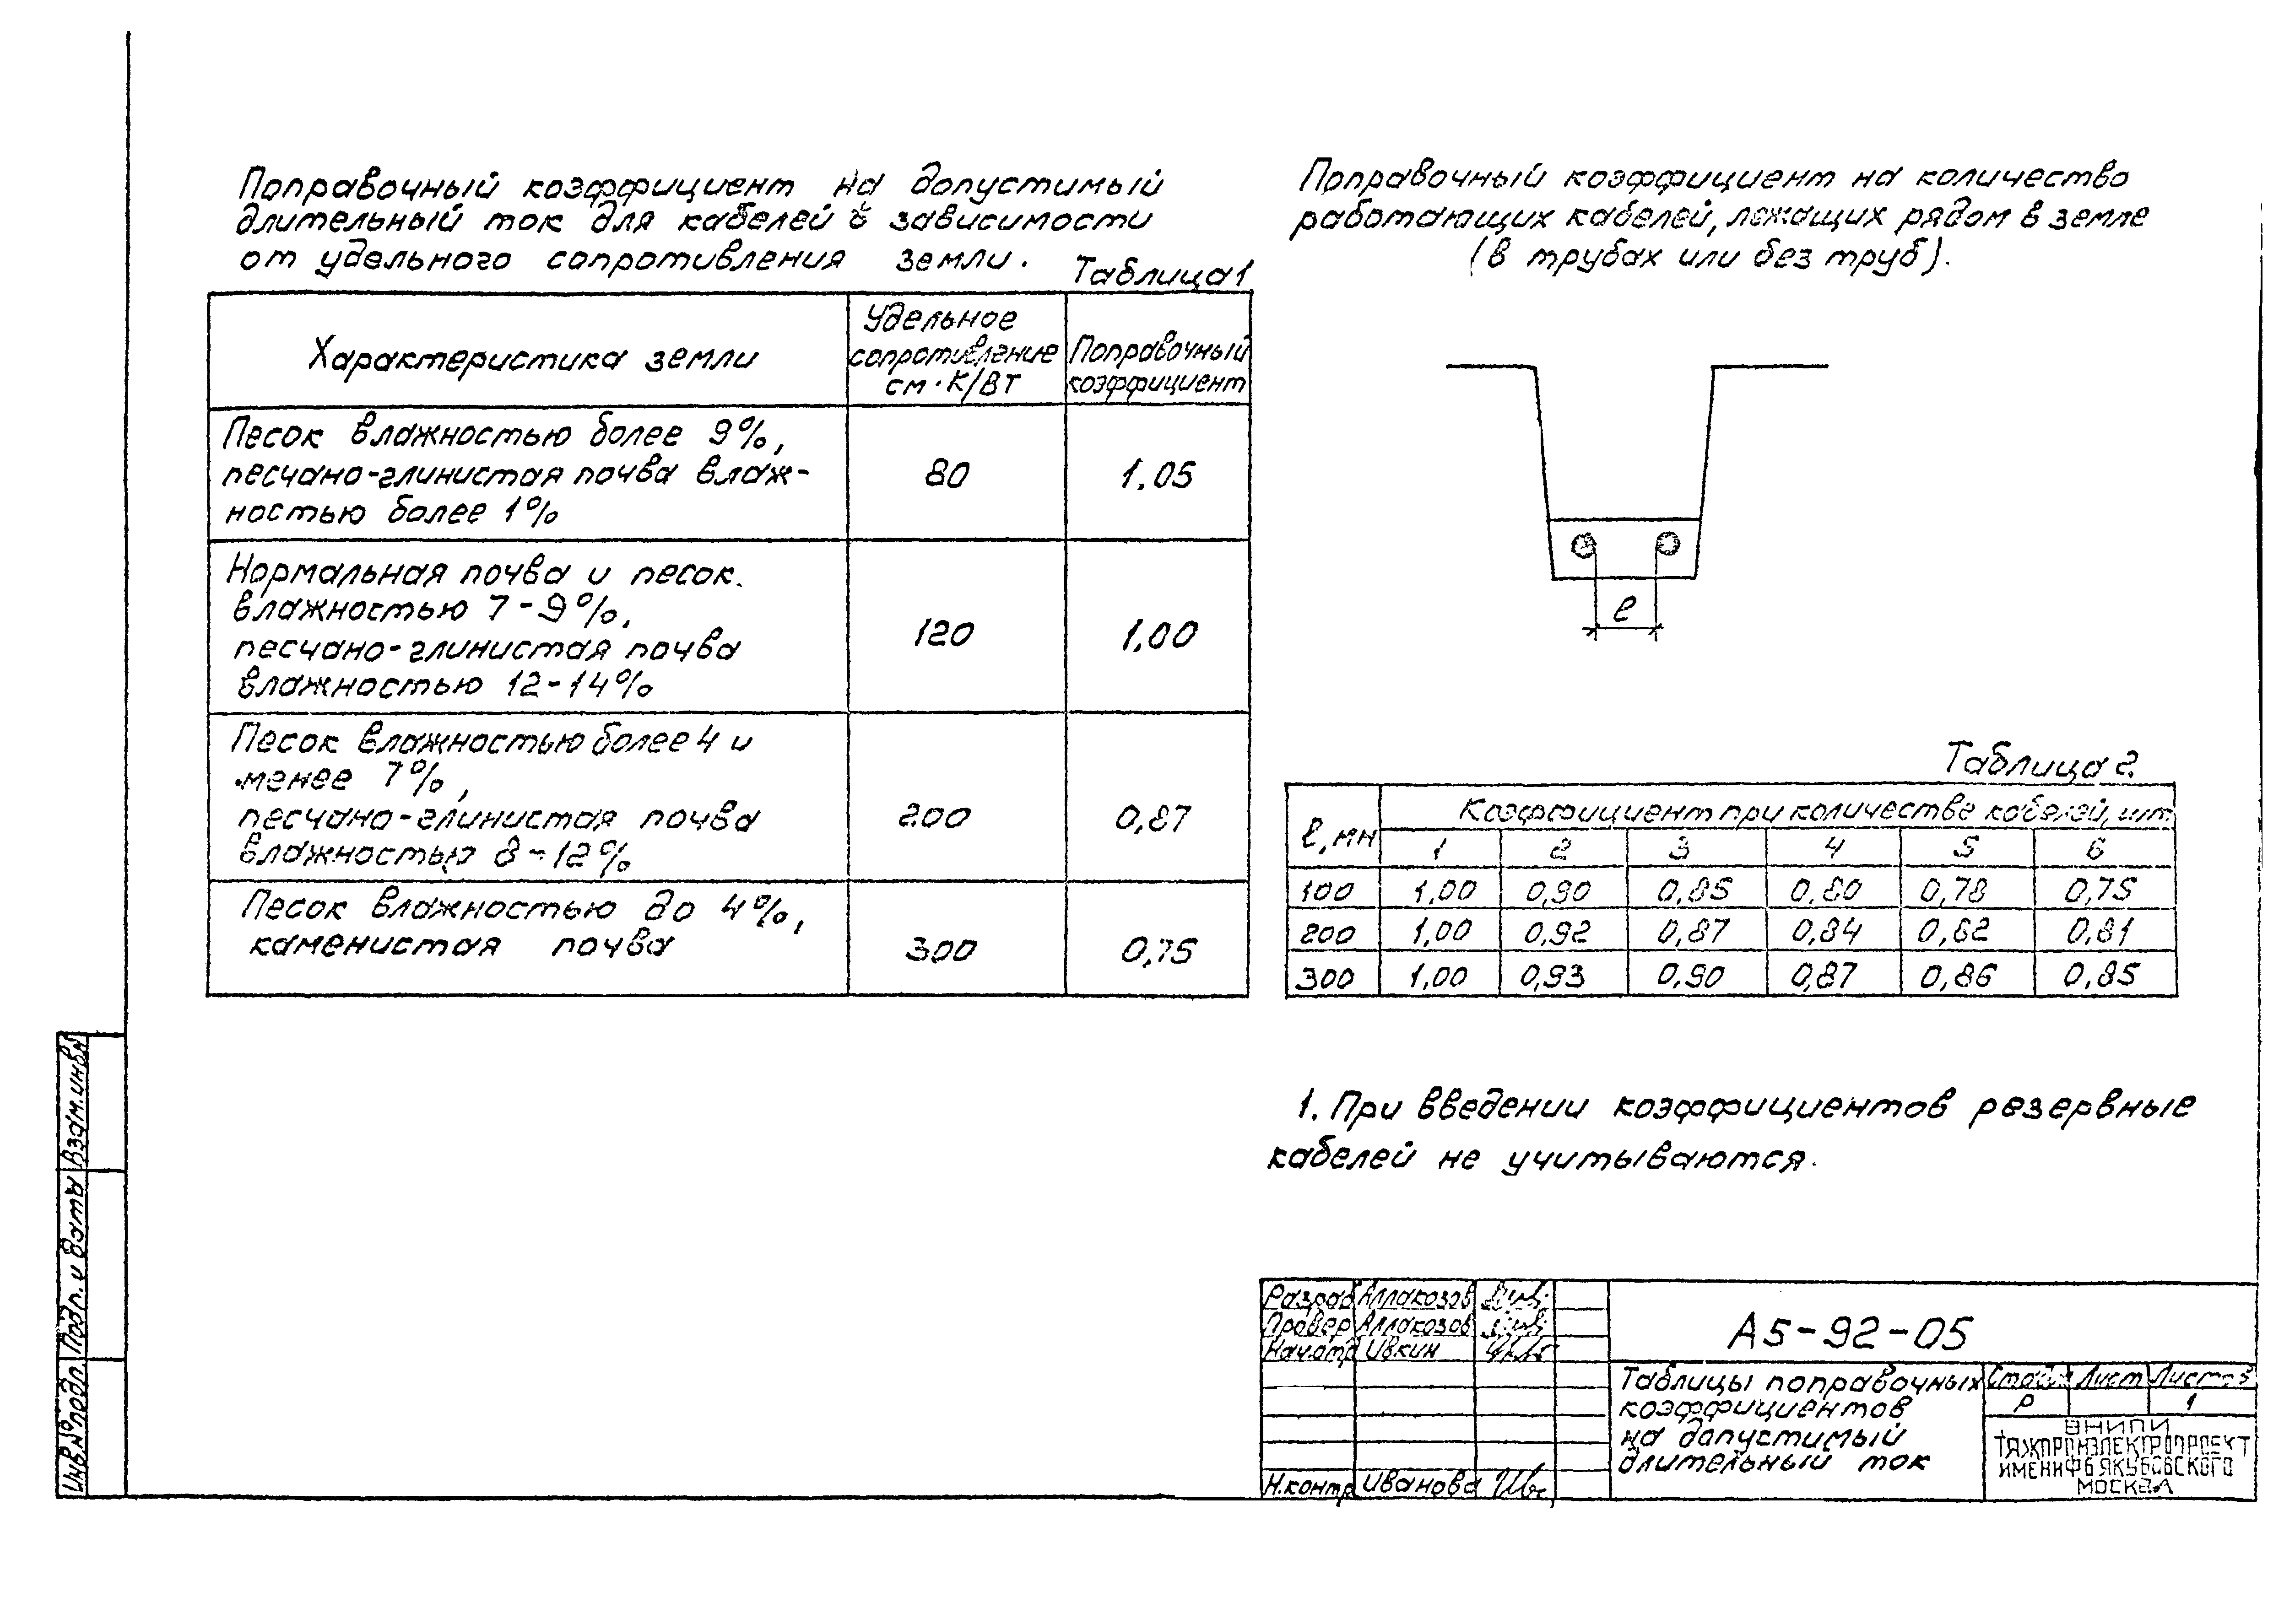 Поправочный коэффициент на допустимый
длительный ток для кабелей в зависимости
от удельного сопротивления земли.
Таблица 1
Характеристика земли
Удельное
сопротивление
см·К/Вт
Поправочный
коэффициент
Песок влажностью более 9%,
песчано-глинистая почва влаж-
ностью более 1%
80
1.05
Нормальная почва и песок.
влажностью 7-9%,
песчано-глинистая почва
влажностью 12-14%
120
1,00
Песок влажностью более 4 и
менее 7%,
песчано-глинистая почва
влажностью 8-12%
200
0,87
Песок влажностью до 4%,
каменистая почва
300
0,75
Поправочный коэффициент на количество
работающих кабелей, лежащих рядом в земле
(в трубах или без труб).
ℓ
Таблица 2.
ℓ, мм
Коэффициент при количестве кабелей, шт
1 2 3 4 5 6
100 1,00 0,90 0,85 0,80 0,78 0,75
200 1,00 0,92 0,87 0,84 0,82 0,81
300 1,00 0,93 0,90 0,87 0,86 0,85
1. При введении коэффициентов резервные
кабелей не учитываются.
Разраб Аллакозов
Провер Аллакозов
Нач.отд Ивкин
Н.контр Иванова
А5-92-05
Таблицы поправочных
коэффициентов
на допустимый
длительный ток
Стадия Лист Листов
Р 1
ВНИПИ
ТЯЖПРОМЭЛЕКТРОПРОЕКТ
ИМЕНИ Ф Б ЯКУБОВСКОГО
МОСКВА
Инв.№ подл. Подп. и дата Взам.инв.№